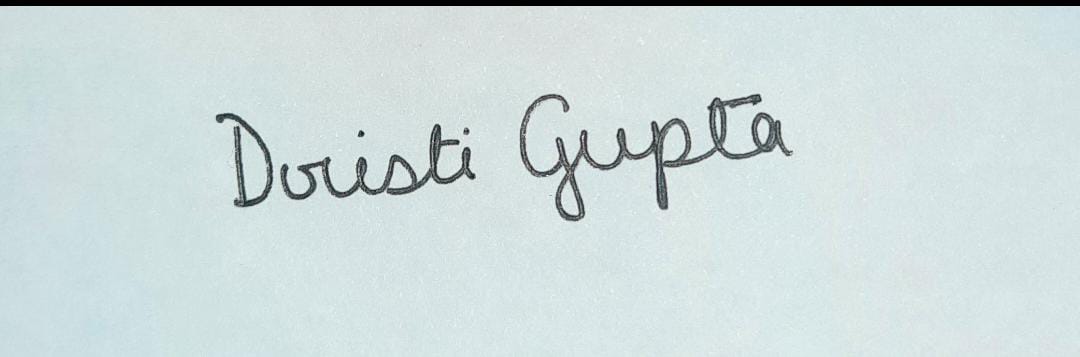 Dristi Gupta